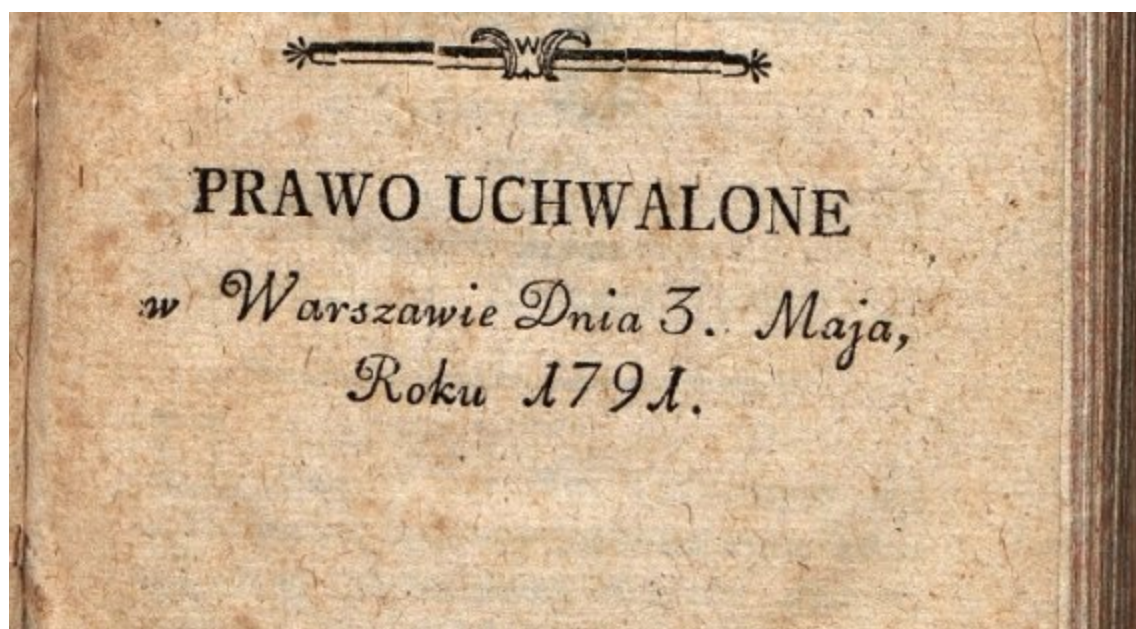 PRAWO UCHWALONE
w Warszawie Dnia 3. Maja,
Roku 1791.